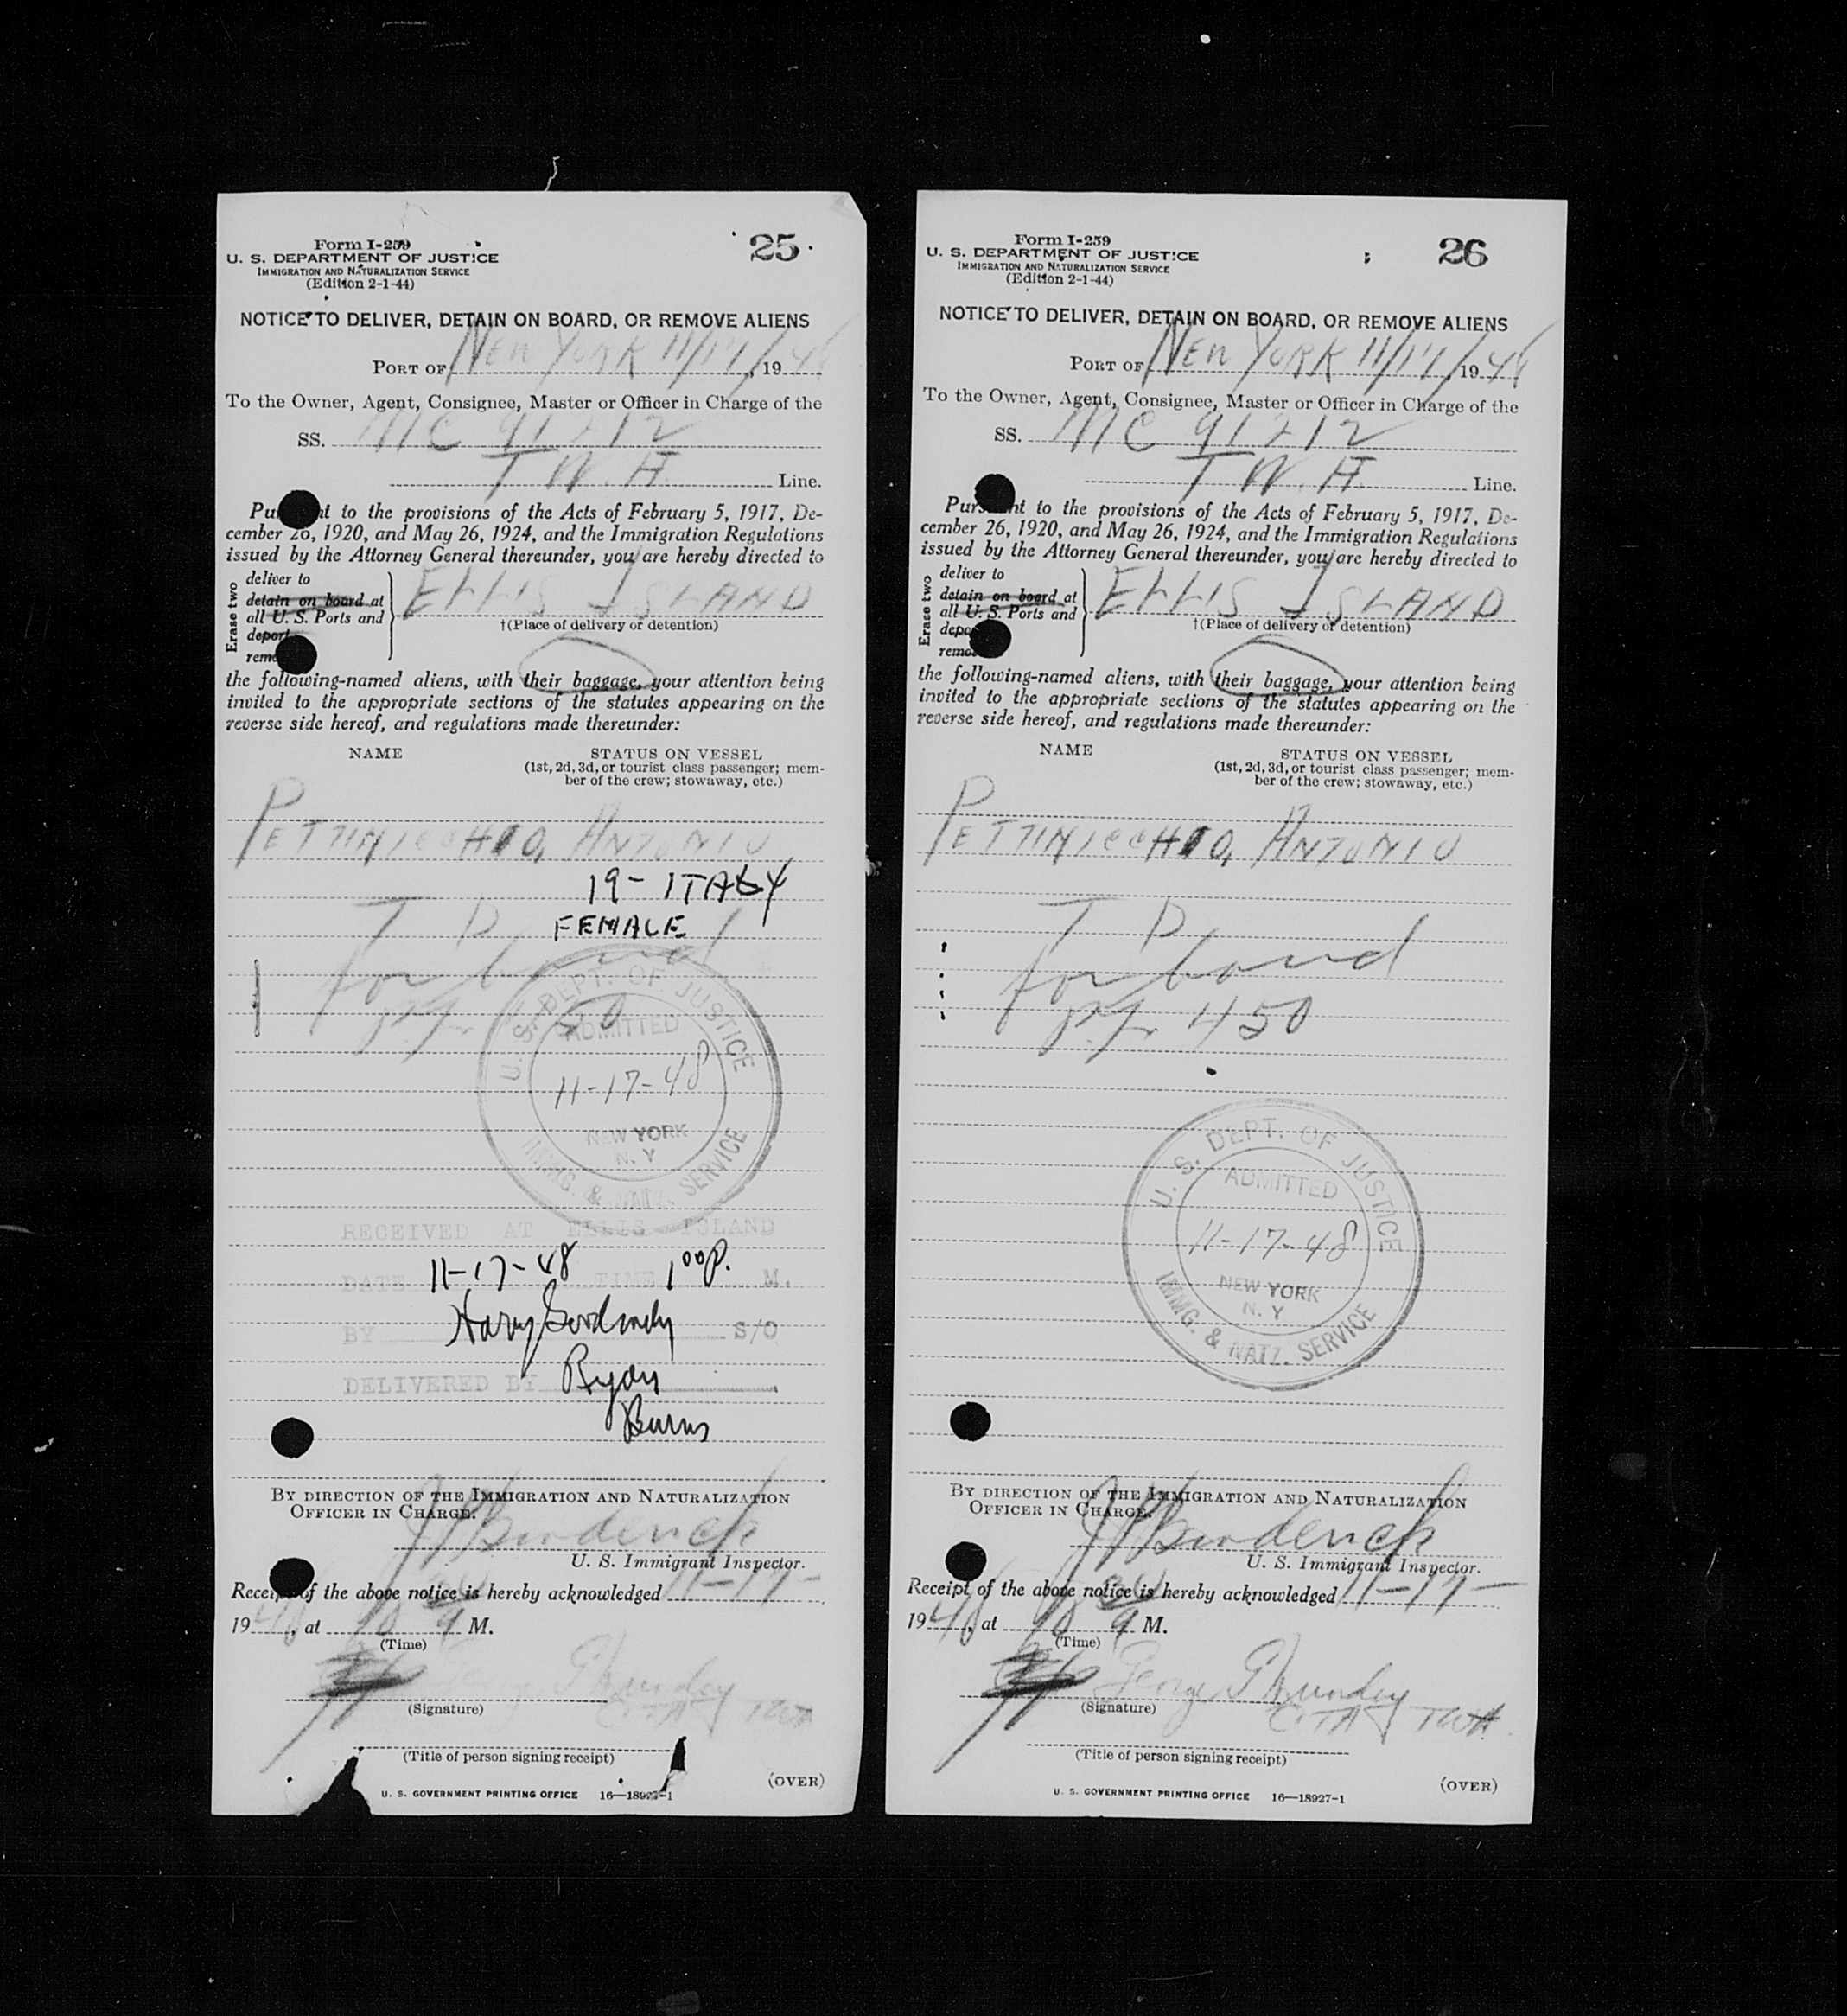 Form I-259
U. S. DEPARTMENT OF JUSTICE
IMMIGRATION AND NATURALIZATION SERVICE
(Edition 2-1-44)
25
NOTICE TO DELIVER, DETAIN ON BOARD, OR REMOVE ALIENS
PORT OF NEW YORK 11/17/, 1948
To the Owner, Agent, Consignee, Master or Officer in Charge of the
SS. NC 91212
T W. A. Line.
Pursuant to the provisions of the Acts of February 5, 1917, De-
cember 26, 1920, and May 26, 1924, and the Immigration Regulations
issued by the Attorney General thereunder, you are hereby directed to
Erase two
deliver to
detain on board at
all U. S. Ports and
deport
remove
ELLIS ISLAND
†(Place of delivery or detention)
the following-named aliens, with their baggage, your attention being
invited to the appropriate sections of the statutes appearing on the
reverse side hereof, and regulations made thereunder:
NAME
STATUS ON VESSEL
(1st, 2d, 3d, or tourist class passenger; mem-
ber of the crew; stowaway, etc.)
PETTINICCHIO, ANTONIO
19- ITALY
FEMALE
T D
for bond
450
U. S. DEPT. OF JUSTICE
ADMITTED
11-17-48
NEW YORK
N. Y
IMMG. & NATZ. SERVICE
RECEIVED AT ELLIS ISLAND
DATE 11-17-48 TIME 1 00 P. M.
BY Harry S/O
DELIVERED BY Ryan
Burns
BY DIRECTION OF THE IMMIGRATION AND NATURALIZATION
OFFICER IN CHARGE.
J Broderick
U. S. Immigrant Inspector.
Receipt of the above notice is hereby acknowledged 11-17-
1948, at 10 M.
(Time)
George
TWA
(Signature)
(Title of person signing receipt)
(OVER)
U. S. GOVERNMENT PRINTING OFFICE 16—18927-1
Form I-259
U. S. DEPARTMENT OF JUSTICE
IMMIGRATION AND NATURALIZATION SERVICE
(Edition 2-1-44)
26
NOTICE TO DELIVER, DETAIN ON BOARD, OR REMOVE ALIENS
PORT OF NEW YORK 11/17/ 1948
To the Owner, Agent, Consignee, Master or Officer in Charge of the
SS. NC 91212
T W. A. Line.
Pursuant to the provisions of the Acts of February 5, 1917, De-
cember 26, 1920, and May 26, 1924, and the Immigration Regulations
issued by the Attorney General thereunder, you are hereby directed to
Erase two
deliver to
detain on board at
all U. S. Ports and
deport
remove
ELLIS ISLAND
†(Place of delivery or detention)
the following-named aliens, with their baggage, your attention being
invited to the appropriate sections of the statutes appearing on the
reverse side hereof, and regulations made thereunder:
NAME
STATUS ON VESSEL
(1st, 2d, 3d, or tourist class passenger; mem-
ber of the crew; stowaway, etc.)
PETTINICCHIO, ANTONIO
T D
for bond
450
U. S. DEPT. OF JUSTICE
ADMITTED
11-17-48
NEW YORK
N. Y
IMMG. & NATZ. SERVICE
BY DIRECTION OF THE IMMIGRATION AND NATURALIZATION
OFFICER IN CHARGE.
J Broderick
U. S. Immigrant Inspector.
Receipt of the above notice is hereby acknowledged 11-17-
1948, at 10 M.
(Time)
George
TWA
(Signature)
(Title of person signing receipt)
(OVER)
U. S. GOVERNMENT PRINTING OFFICE 16—18927-1